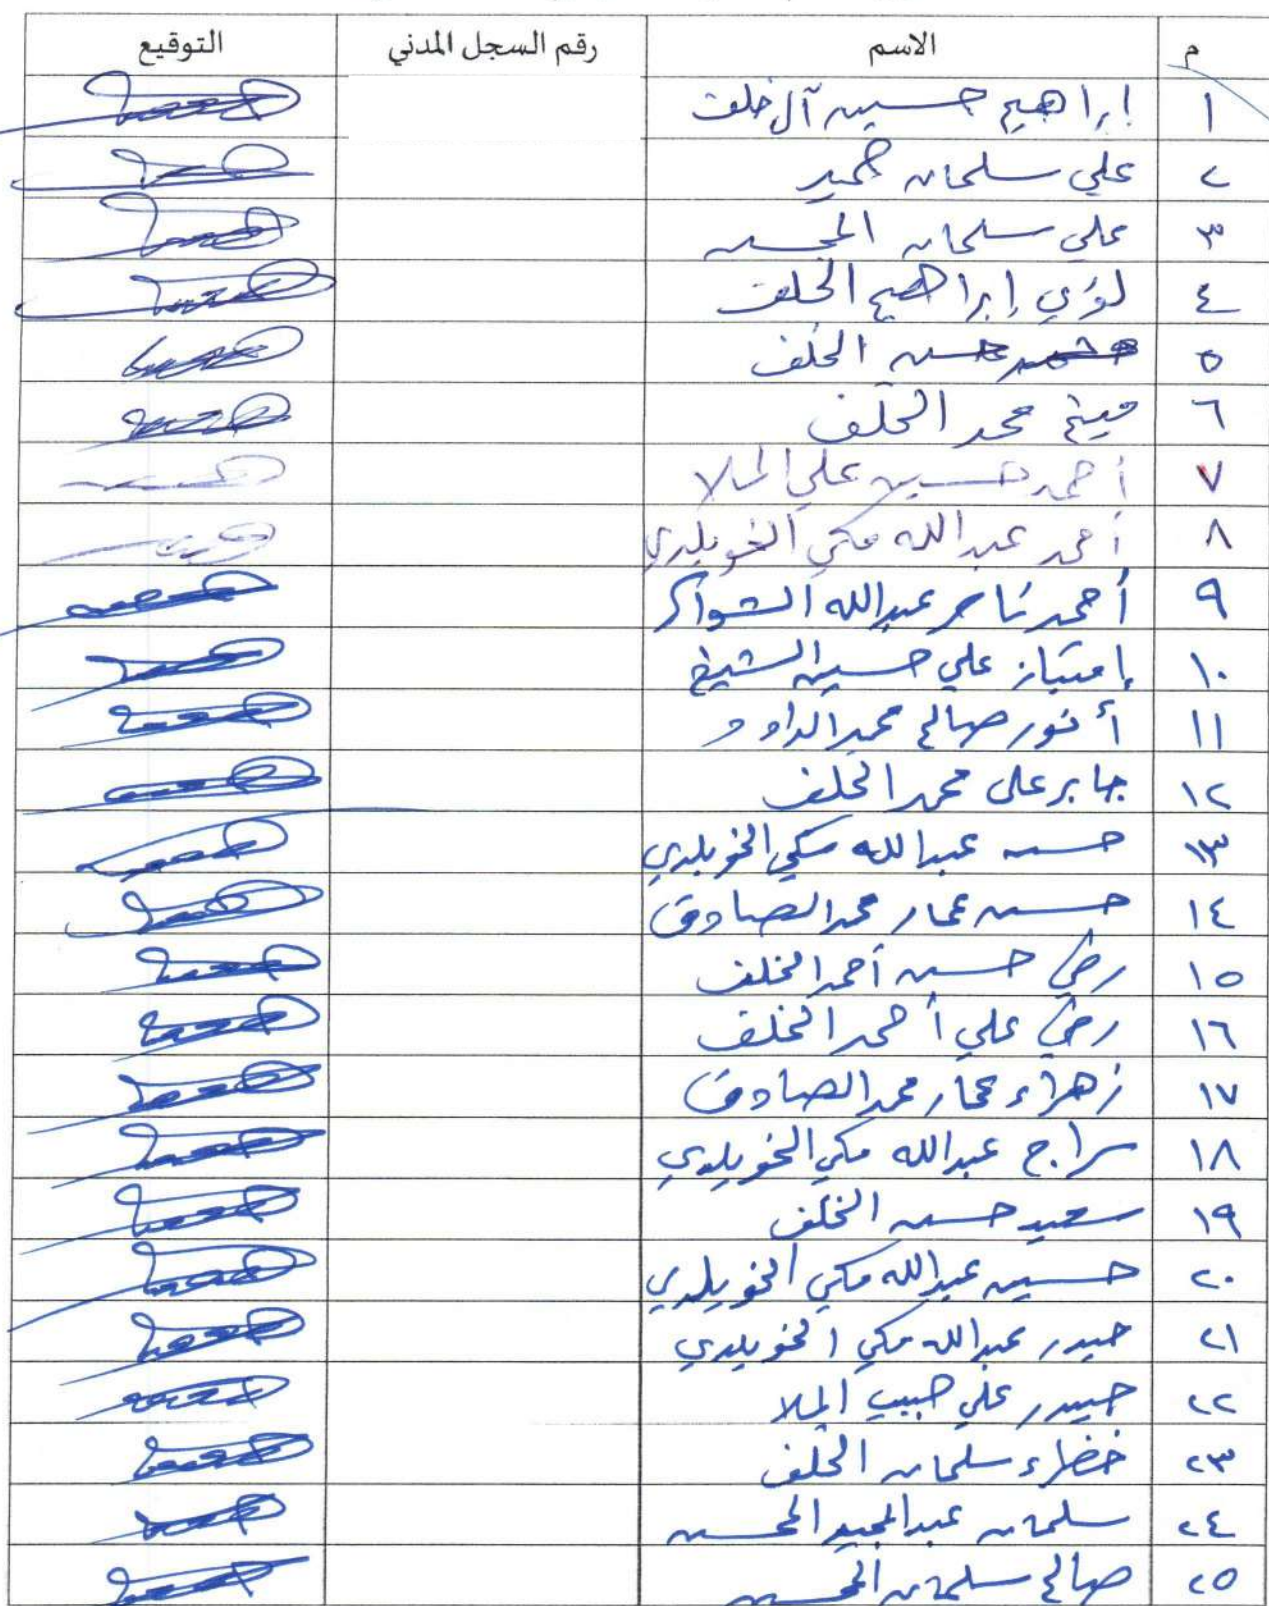 م الاسم رقم السجل المدني التوقيع
١ إبراهيم حسين آل خلف
٢ علي سلمان حميد
٣ علي سلمان المحسن
٤ لؤي إبراهيم الخلف
٥ حسن الخلف
٦ ميثم محمد الخلف
٧ أحمد حسين علي الملا
٨ أحمد عبدالله مكي الخويلدي
٩ أحمد ناصر عبدالله الشواكر
١٠ إمتياز علي حسين الشيخ
١١ أنور صالح محمد الداوود
١٢ جابر علي محمد الخلف
١٣ حسن عبدالله مكي الخويلدي
١٤ حسن عمار محمد الصادق
١٥ رضي حسين أحمد الخلف
١٦ رضي علي أحمد الخلف
١٧ زهراء عمار محمد الصادق
١٨ سراج عبدالله مكي الخويلدي
١٩ سعيد حسن الخلف
٢٠ حسين عبدالله مكي الخويلدي
٢١ حيدر عبدالله مكي الخويلدي
٢٢ حيدر علي حبيب الملا
٢٣ خضراء سلمان الخلف
٢٤ سلمان عبدالمجيد المحسن
٢٥ صالح سلمان المحسن